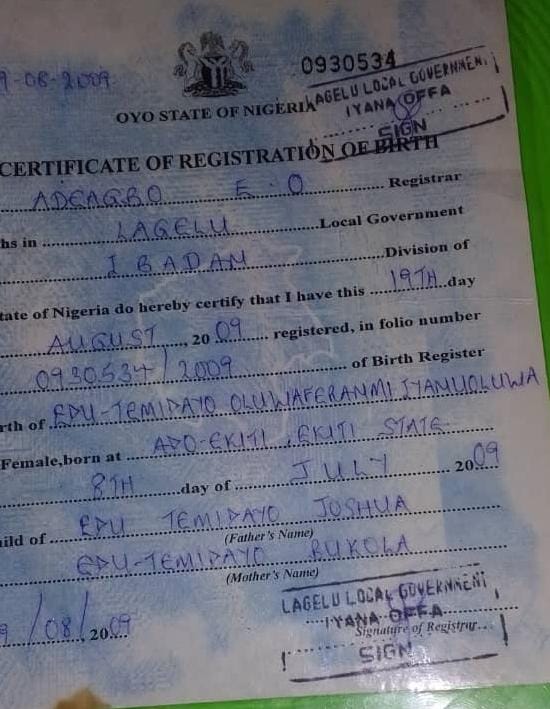 9-08-2009
0930534
LAGELU LOCAL GOVERNMENT
IYANA OFFA
SIGN
OYO STATE OF NIGERIA
CERTIFICATE OF REGISTRATION OF BIRTH
ADEAGBO E.O Registrar
hs in LAGELU Local Government
IBADAN Division of
tate of Nigeria do hereby certify that I have this 19TH day
AUGUST, 2009 registered, in folio number
0930534/2009 of Birth Register
rth of EDU-TEMIDAYO OLUWAFERANMI IYANUOLUWA
Female, born at ADO-EKITI, EKITI STATE
8TH day of JULY 2009
ild of EDU TEMIDAYO JOSHUA
(Father's Name)
EDU-TEMIDAYO BUKOLA
(Mother's Name)
LAGELU LOCAL GOVERNMENT
IYANA OFFA
9/08/2009 Signature of Registrar
SIGN